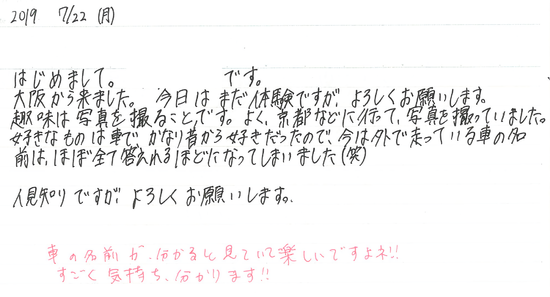 2019 7/22 (月)
はじめまして。 です。
大阪から来ました。 今日は まだ体験ですが、よろしくお願いします。
趣味は写真を撮ることです。よく、京都などに行って、写真を撮っていました。
好きなものは車で、かなり昔から好きだったので、今は外で走っている車の名
前は、ほぼ全て答えれるほどになってしまいました(笑)
人見知りですが、よろしくお願いします。
車の名前が、分かると見ていて楽しいですよネ!!
すごく気持ち、分かります!!